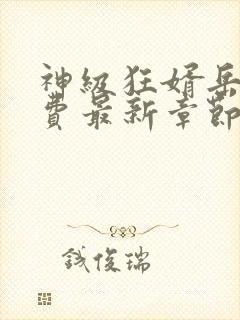 神级狂婿岳
费最新章节
钱俊瑞